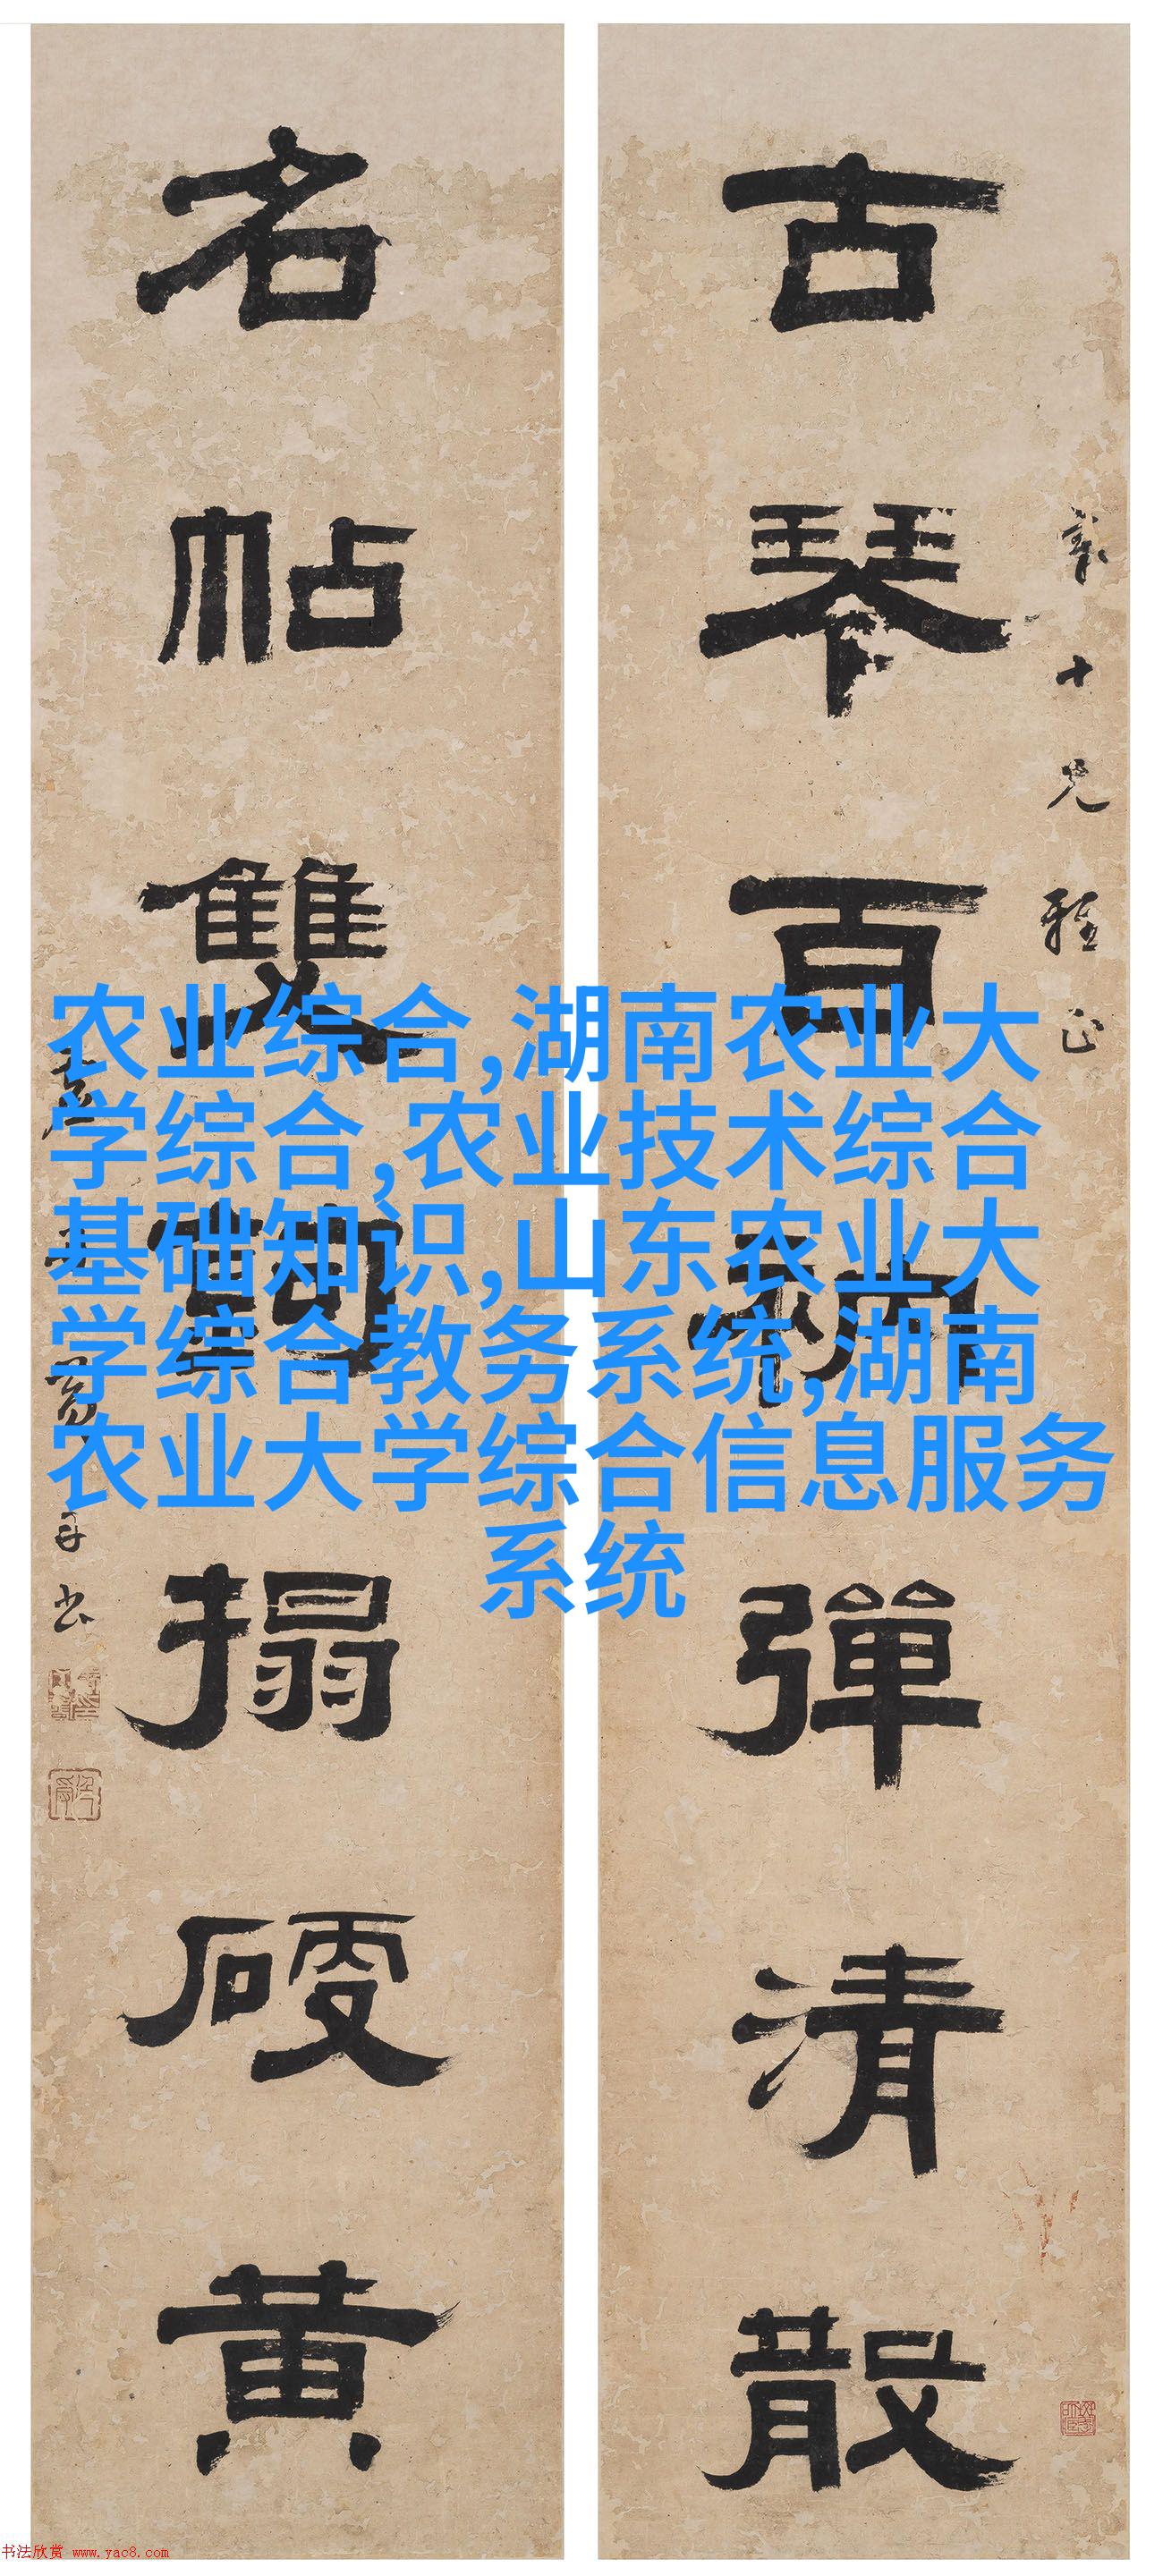 古琴百衲彈清散
名帖雙鉤搨硬黄
十兄雅正
書
农业综合,湖南农业大
学综合,农业技术综合
基础知识,山东农业大
学综合教务系统,湖南
农业大学综合信息服务
系统
书法欣赏 www.yac8.com